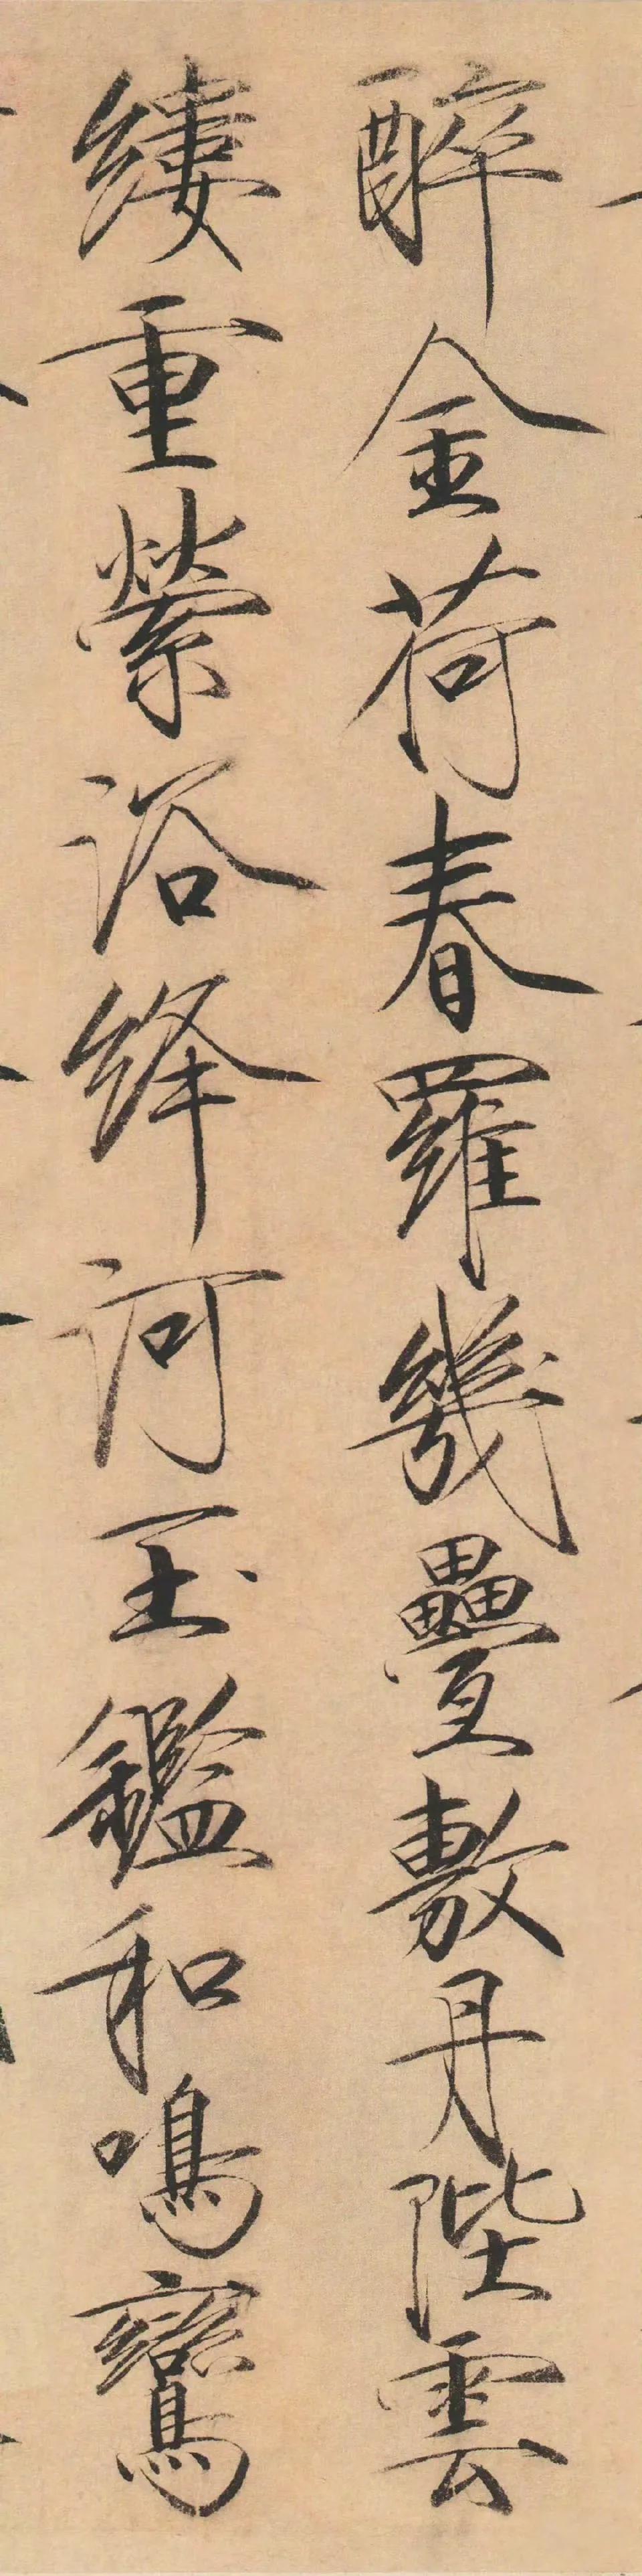 醉金荷春羅幾疊敷丹陛雲
縷重縈浴絳河玉鑑和鳴鸞